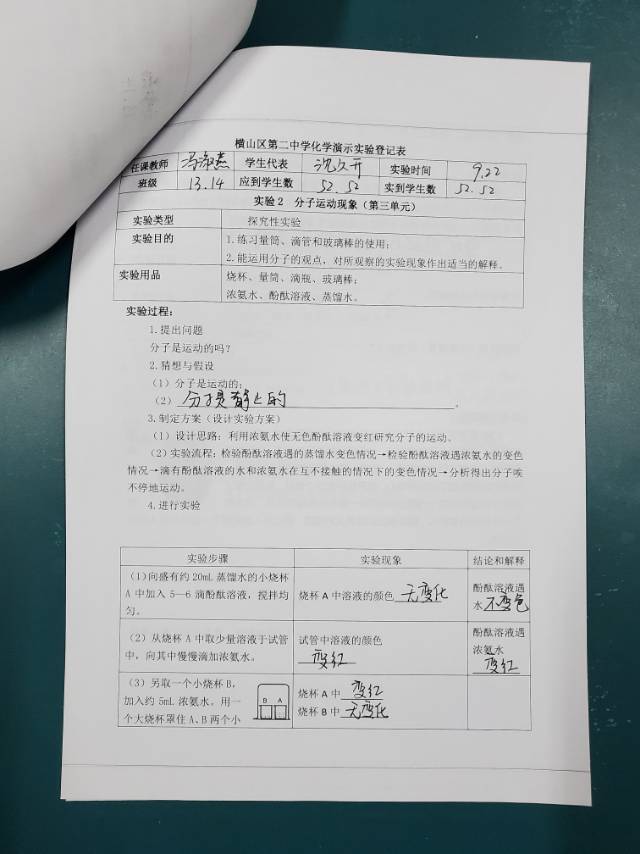 横山区第二中学化学演示实验登记表
任课教师 冯淑燕 学生代表 沈文开 实验时间 9.22
班级 13.14 应到学生数 52.52 实到学生数 52.52
实验2 分子运动现象（第三单元）
实验类型 探究性实验
实验目的 1.练习量筒、滴管和玻璃棒的使用；
2.能运用分子的观点，对所观察的实验现象作出适当的解释。
实验用品 烧杯、量筒、滴瓶、玻璃棒；
浓氨水、酚酞溶液、蒸馏水。
实验过程：
1.提出问题
分子是运动的吗？
2.猜想与假设
（1）分子是运动的；
（2）分子是静止的。
3.制定方案（设计实验方案）
（1）设计思路：利用浓氨水使无色酚酞溶液变红研究分子的运动。
（2）实验流程：检验酚酞溶液遇的蒸馏水变色情况→检验酚酞溶液遇浓氨水的变色
情况→滴有酚酞溶液的水和浓氨水在互不接触的情况下的变色情况→分析得出分子唉
不停地运动。
4.进行实验
实验步骤 实验现象 结论和解释
（1）向盛有约20mL蒸馏水的小烧杯
A中加入5—6滴酚酞溶液，搅拌均
匀。
烧杯A中溶液的颜色 无变化
酚酞溶液遇
水 不变色
（2）从烧杯A中取少量溶液于试管
中，向其中慢慢滴加浓氨水。
试管中溶液的颜色
变红
酚酞溶液遇
浓氨水
变红
（3）另取一个小烧杯B，
加入约5mL浓氨水。用一
个大烧杯罩住A、B两个小
B A
烧杯A中 变红
烧杯B中 无变化